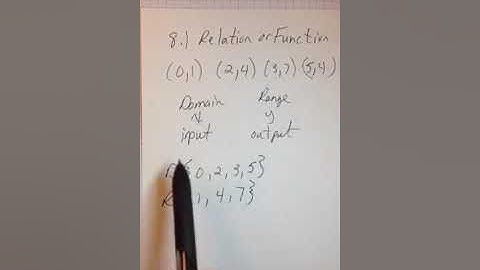 8.1 Relation or Function
(0,1) (2,4) (3,7) (5,4)
Domain Range
x y
input output
0, 2, 3, 5}
1, 4, 7}